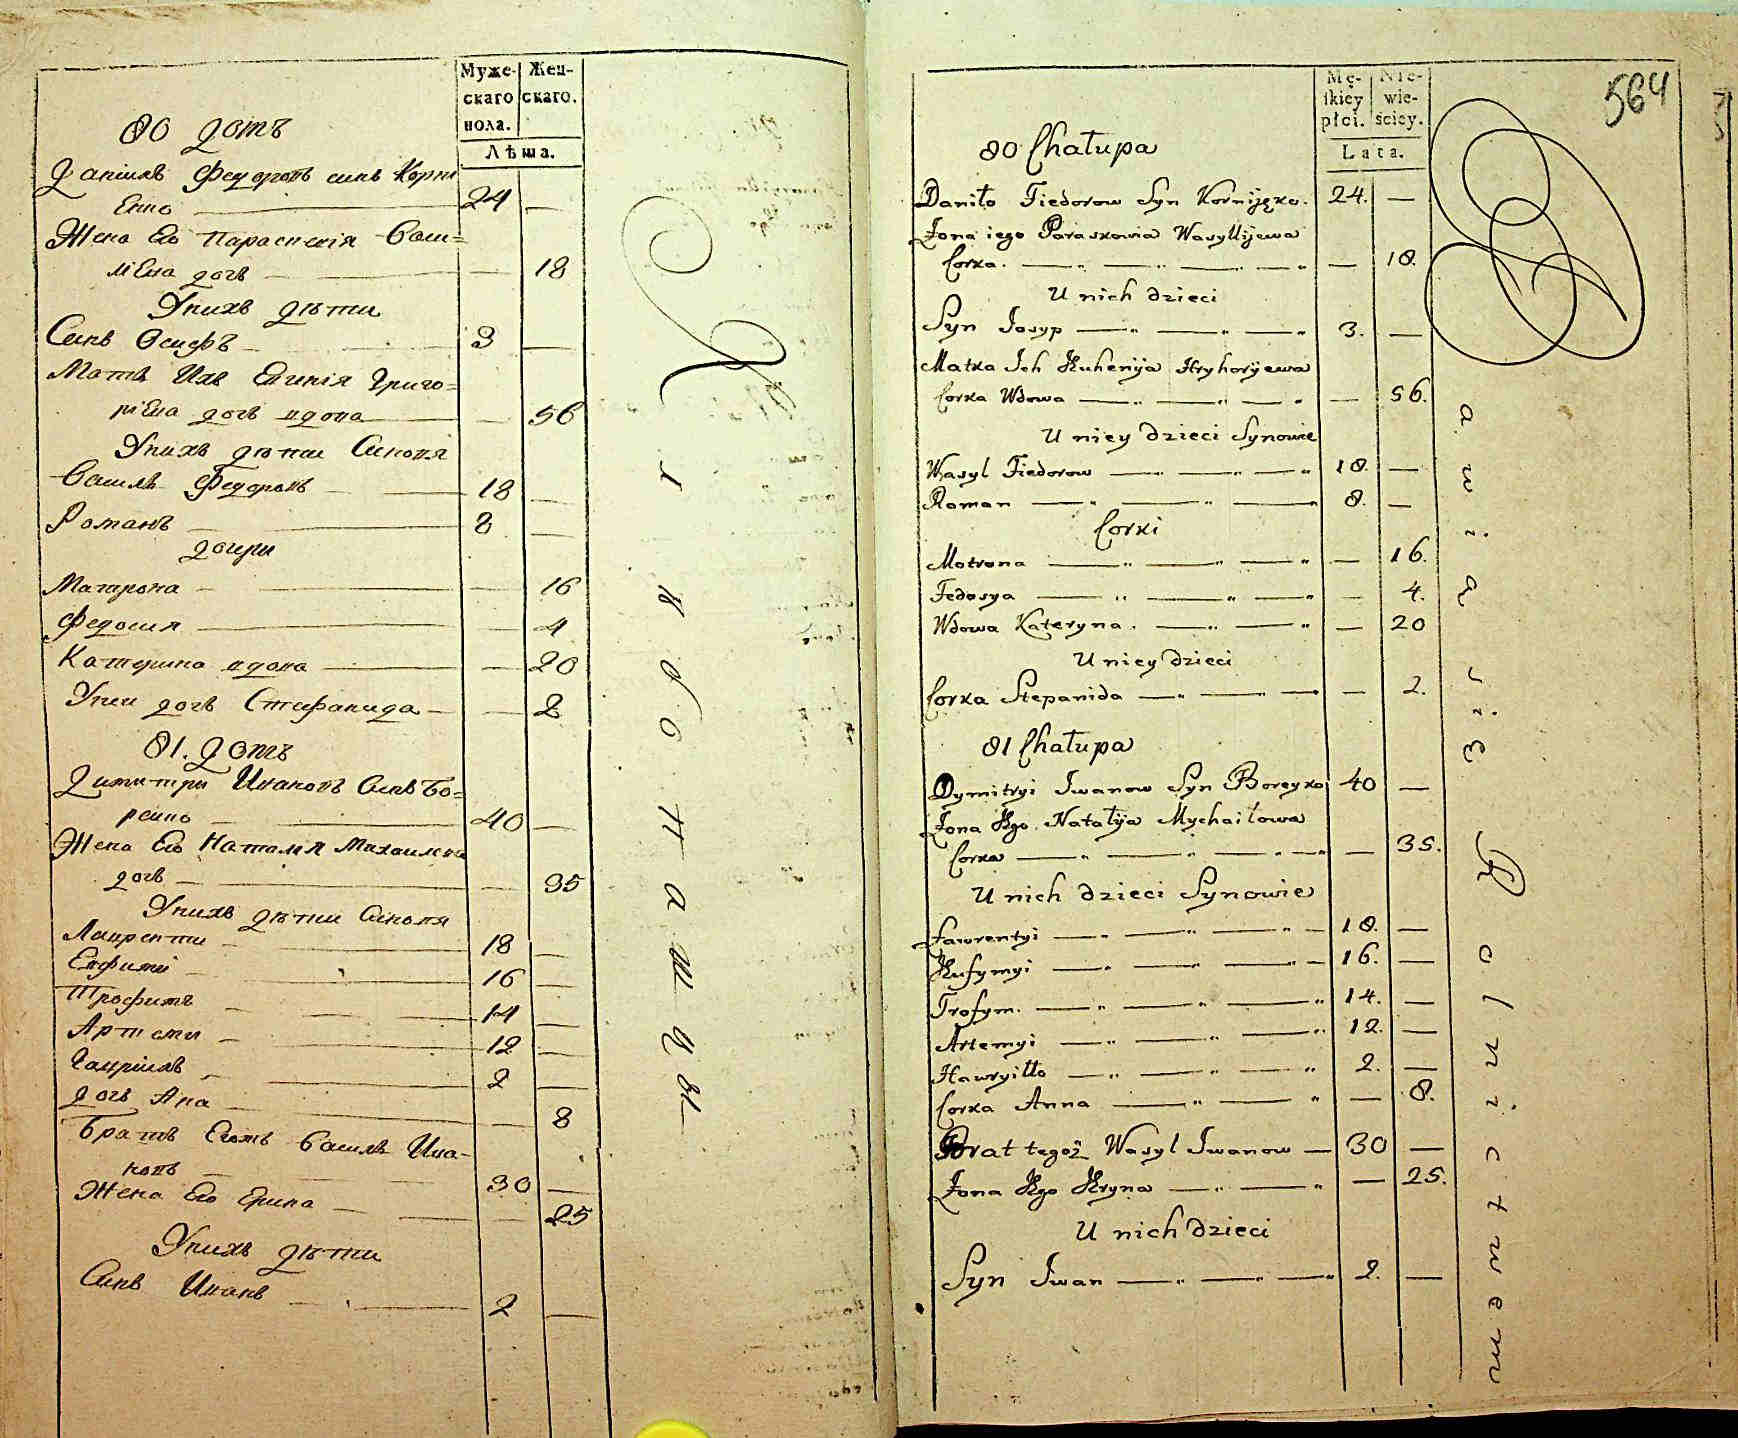 Муже-
скаго
пола.
Жен-
скаго.
Лѣта.
80 домъ
Данило Федоровъ синъ Корні
Енко 24 —
Жена Его Параскевія Васи=
ліева дочь — 18
Унихъ дѣти
Синъ Осифъ 3 —
Мать Ихъ Евгенія Григо=
ріева дочь вдова — 56
Унихъ дѣти Синовя
Василь Федоровъ 18 —
Романъ 8 —
дочери
Матрона — 16
Федосия — 4
Катерина вдова — 20
Унеи дочь Стефанида — 2
81. домъ
Димитри Ивановъ Синъ Бо=
рейко 40 —
Жена Его Наталя Михаилова
дочь — 35
Унихъ дѣти Синовя
Лаврентии 18 —
Евфимій 16 —
Трофимъ 14 —
Артеми 12 —
Гавріілъ 2 —
дочь Ана — 8
Братъ Егожъ Василь Ива-
новъ 30 —
Жена Его Ерина — 25
Унихъ дѣти
Синъ Иванъ 2 —
564
Mę-
skiey
płci.
Nie-
wie-
ściey.
Lata.
80 Chałupa
Daniło Fiedorow Syn Kornijęko. 24. —
Żona iego Paraskowia Wasyllijewa
Corka. — 18.
U nich dzieci
Syn Josyp 3. —
Matka Ich Euhenija Hryhoryjewa
Corka Wdowa — 56.
U niey dzieci Synowie
Wasyl Fiedorow 18. —
Roman 8. —
Corki
Motrona — 16.
Fedosya — 4.
Wdowa Kateryna. — 20
U niey dzieci
Corka Stepanida — 2.
81 Chałupa
Dymitryi Iwanow Syn Boreyko 40 —
Żona Ego Natalija Mychaiłowa
Corka — 35.
U nich dzieci Synowie
Ławrentyi 18. —
Eufymyi 16. —
Trofym. 14. —
Artemyi 12. —
Hawryiłło 2. —
Corka Anna — 8.
Brat tegoż Wasyl Iwanow 30 —
Żona Ego Eryna — 25.
U nich dzieci
Syn Iwan 2. —